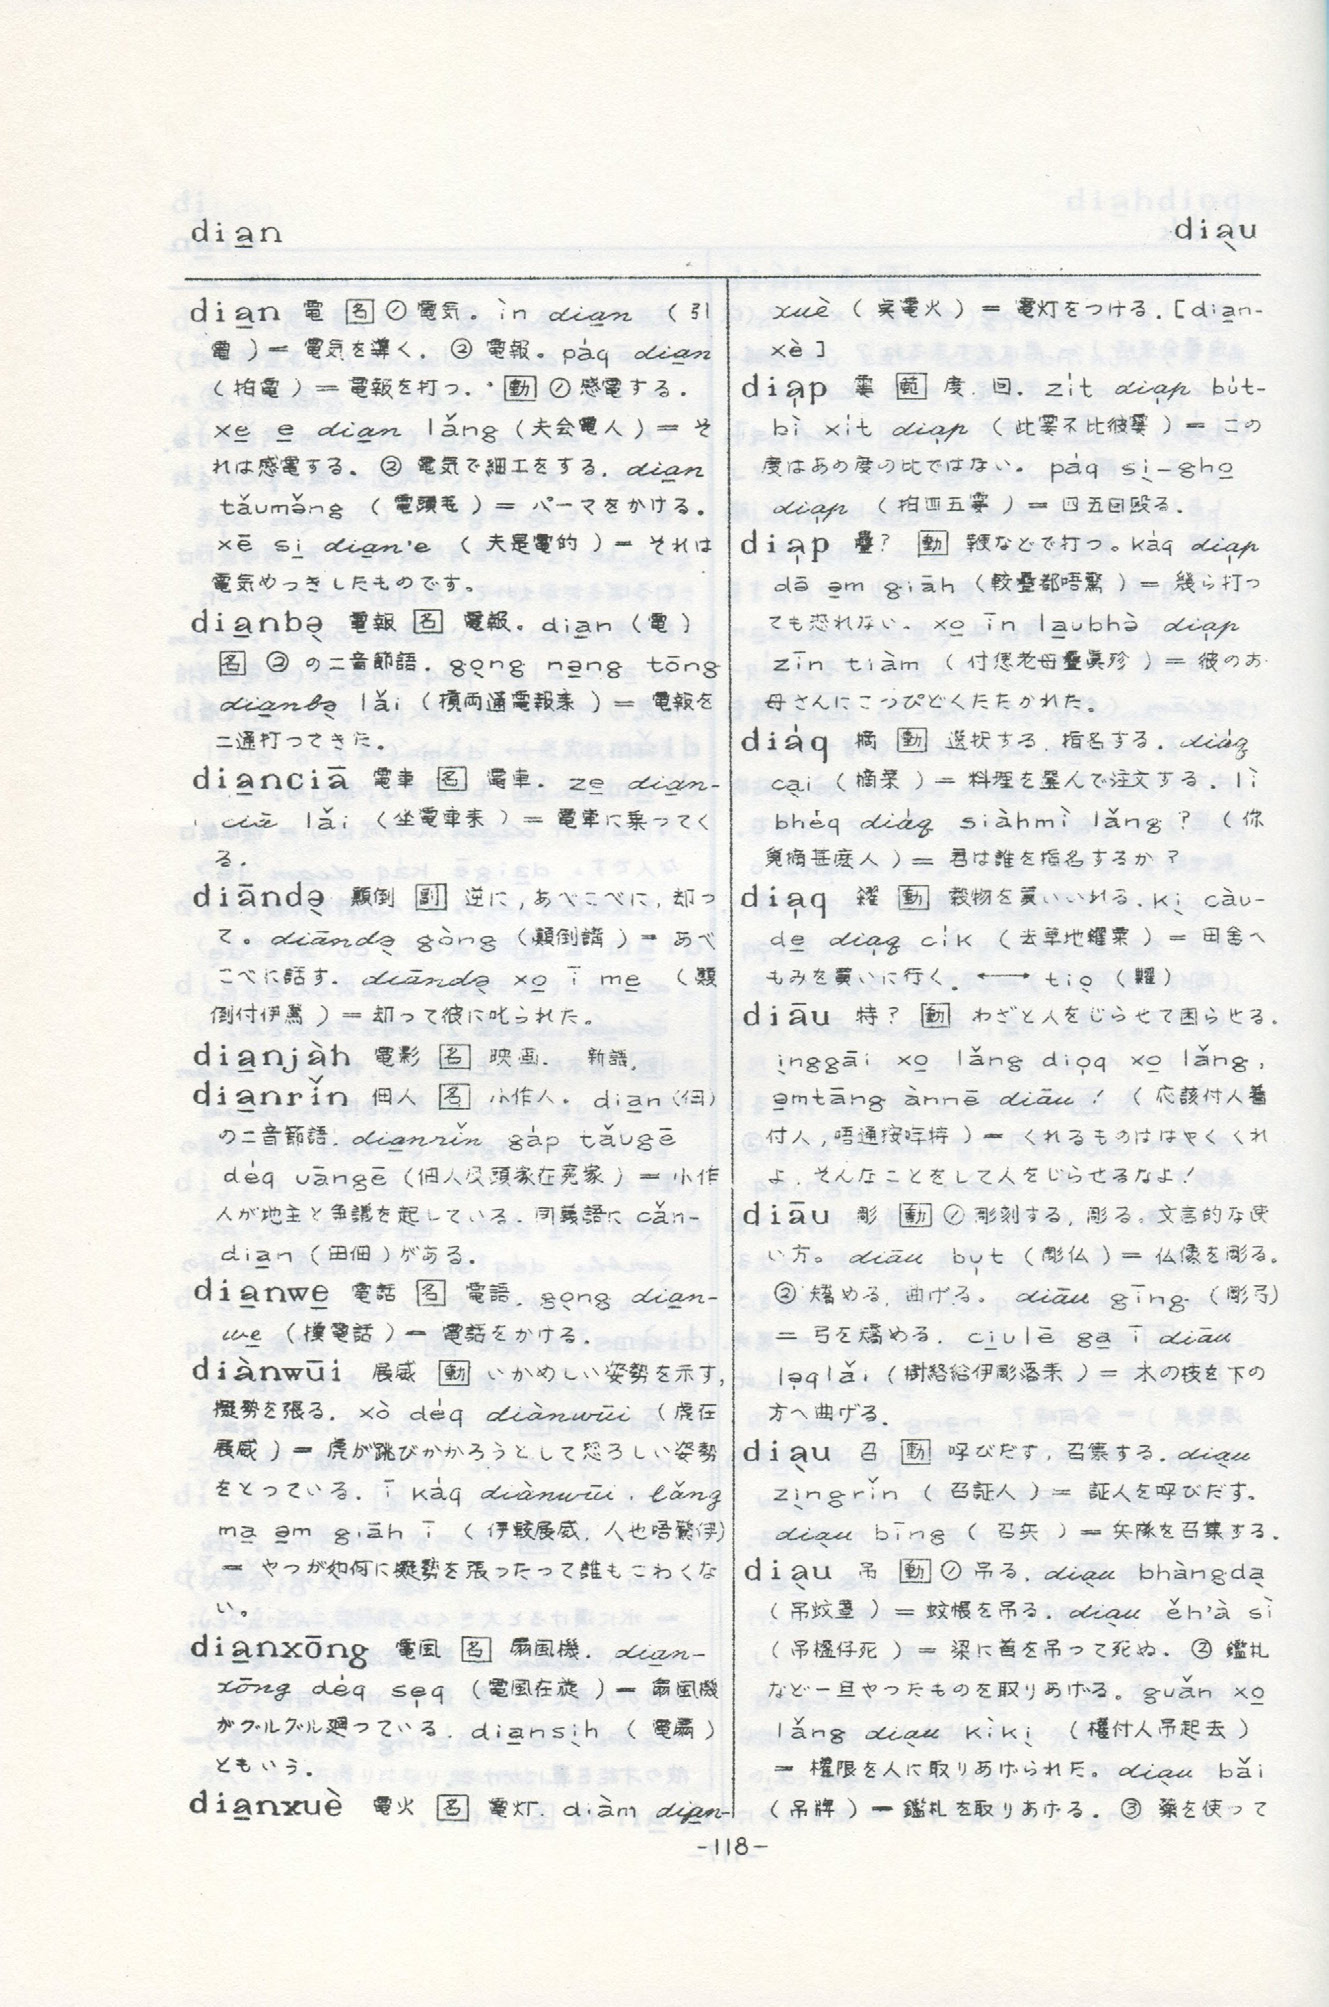 dia̱n
dia̩u
dia̱n 電 名 ① 電気。ìn dia̱n （引
電）＝ 電気を導く. ② 電報。páq dia̱n
（拍電）＝ 電報を打つ. 動 ① 感電する.
xe̱ e̱ dia̱n lǎng（夫会電人）＝ そ
れは感電する。② 電気で細工をする. dia̱n
tǎumə̌ng （電頭毛）＝ パーマをかける。
xē si̱ dia̱n'e （夫是電的）＝ それは
電気めっきしたものです。
dia̱nbə̩ 電報 名 電報。dia̱n（電）
名 ② の二音節語. go̩ng nə̱ng tōng
dia̱nbə̩ lǎi（摃両通電報来）＝ 電報を
二通打ってきた。
dia̱nciā 電車 名 電車. ze̱ dia̱n-
ciā lǎi （坐電車来）＝ 電車に乗ってく
る.
diāndə̩ 顛倒 副 逆に,あべこべに,却っ
て。diāndə̩ gòng（顛倒講）＝ あべ
こべに話す. diāndə̩ xo̱ ī me̱ （顛
倒付伊罵）＝ 却って彼に叱られた。
dia̱njàh 電影 名 映画. 新語.
dia̱nrǐn 佃人 名 小作人. dia̱n（佃）
の二音節語. dia̱nrǐn gáp tǎugē
déq uāngē（佃人及頭家在冤家）＝ 小作
人が地主と争議を起している. 同義語に cǎn-
dia̱n（田佃）がある.
dia̱nwe̱ 電話 名 電話. go̩ng dia̱n-
we̱ （摃電話）＝ 電話をかける.
diànwūi 展威 動 いかめしい姿勢を示す,
擬勢を張る. xò déq diànwūi （虎在
展威）＝ 虎が跳びかかろうとして恐ろしい姿勢
をとっている. ī káq diànwūi, lǎng
ma̱ ə̱m giāh ī （伊較展威, 人也唔驚伊）
＝ やつが如何に擬勢を張ったって誰もこわくな
い。
dia̱nxōng 電風 名 扇風機. dia̱n-
xōng déq se̩q （電風在旋）＝ 扇風機
がグルグル廻っている. dia̱nsi̩h （電扇）
ともいう.
dia̱nxuè 電火 名 電灯. diàm dia̱n-
xuè（点電火）＝ 電灯をつける.［dia̱n-
xè］
dia̩p 霎 範 度. 回. zít dia̩p bút-
bì xít dia̩p （此霎不比彼霎）＝ この
度はあの度の比ではない。páq si̩-gho̱
dia̩p （拍四五霎）＝ 四五回殴る.
dia̩p 疊? 動 鞭などで打つ。káq dia̩p
dā ə̱m giāh（較疊都唔驚）＝ 幾ら打っ
ても恐れない. xo̱ īn la̱ubhə̀ dia̩p
zīn tiàm （付怹老母疊眞珍）＝ 彼のお
母さんにこっぴどくたたかれた。
diáq 摘 動 選択する. 指名する. diáq
ca̩i（摘菜）＝ 料理を選んで注文する. lì
bhéq diáq siàhmì lǎng？（你
覓摘甚麽人）＝ 君は誰を指名するか？
dia̩q 糴 動 穀物を買いいれる. ki̩ càu-
de̱ dia̩q cík （去草地糴粟）＝ 田舎へ
もみを買いに行く. ←→ tio̩（糶）
diāu 特? 動 わざと人をじらせて困らせる.
i̩nggāi xo̱ lǎng dio̩q xo̱ lǎng,
ə̱mtāng ànnē diāu！（応該付人着
付人,唔通按哖特）＝ くれるものははやくくれ
よ. そんなことをして人をじらせるなよ！
diāu 彫 動 ① 彫刻する, 彫る。文言的な使
い方。diāu bu̩t（彫仏）＝ 仏像を彫る。
② 矯める. 曲げる。diāu gīng（彫弓）
＝ 弓を矯める. ciu̱lē ga̱ ī diāu
lə̩qlǎi（樹絡給伊彫落来）＝ 木の枝を下の
方へ曲げる.
dia̩u 召 動 呼びだす, 召集する. dia̩u
zi̩ngrǐn （召証人）＝ 証人を呼びだす。
dia̩u bīng（召兵）＝ 兵隊を召集する.
dia̩u 吊 動 ① 吊る. dia̩u bhàngda̩
（吊蚊罩）＝ 蚊帳を吊る. dia̩u ěh'à sì
（吊楹仔死）＝ 梁に首を吊って死ぬ. ② 鑑札
など一旦やったものを取りあげる。guǎn xo̱
lǎng dia̩u kìki̩ （権付人吊起去）
＝ 権限を人に取りあげられた。dia̩u bǎi
（吊牌）＝ 鑑札を取りあげる. ③ 薬を使って
-118-